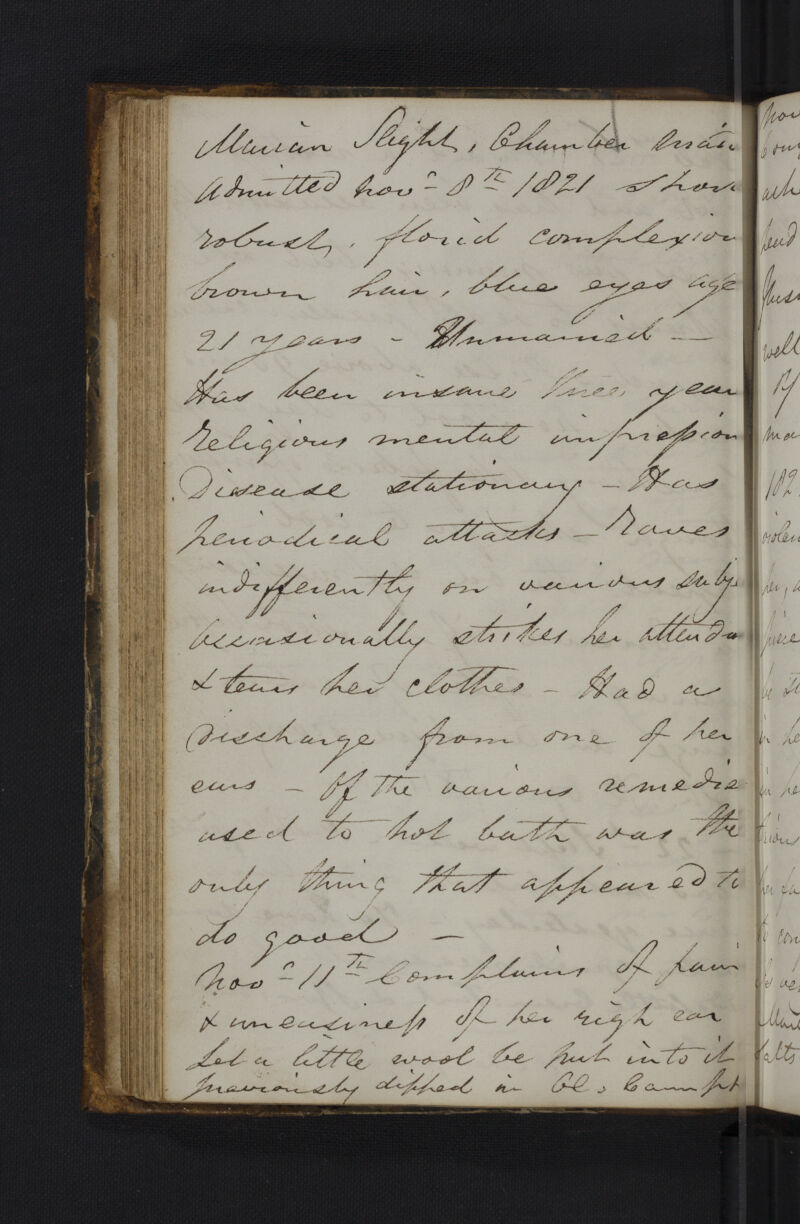 Marian Slight, Chamber maid
Admitted Novr 8th 1821 Short
robust, florid complexion
brown hair, blue eyes age
21 years - Unmarried —
Has been insane three year
Religious mental impression
Disease stationary - Has
periodical attacks - Raves
indifferently on various subje
occasionally strikes her attenda
& tears her clothes - Had a
discharge from one of her
ears - Of the various remedie
used to hot bath was the
only thing that appeared to
do good —
Novr 11th Complains of pain
& uneasiness of her righ ear
Let a little wool be put into it
previously dipped in Ol. Campt